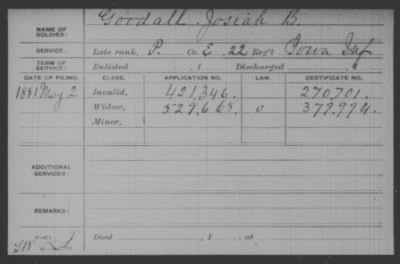 NAME OF SOLDIER: Goodall, Josiah B.
SERVICE: Late rank, P. Co. E, 22 Reg't Iowa Inf
TERM OF SERVICE: Enlisted , 1 Discharged , 1
DATE OF FILING. CLASS. APPLICATION NO. LAW. CERTIFICATE NO.
1881 May 2 Invalid, 421,346. 270,701.
Widow, 529,668. 379,994.
Minor,
ADDITIONAL SERVICES:
REMARKS:
Died , 1 , at